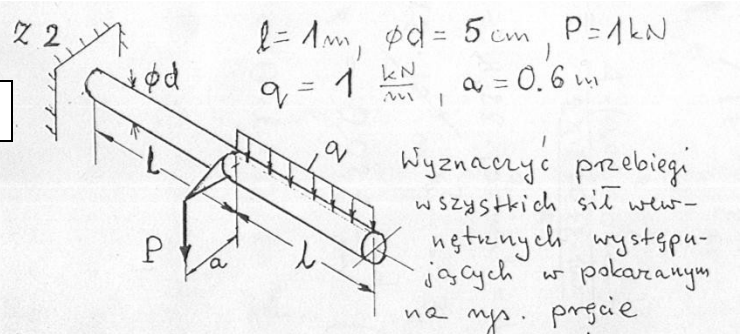 Z 2
l = 1 m, ϕd = 5 cm, P = 1 kN
q = 1 kN/m, a = 0.6 m
ϕd
q
l
P
a
l
Wyznaczyć przebiegi
wszystkich sił wew-
nętrznych występu-
jących w pokazanym
na rys. pręcie